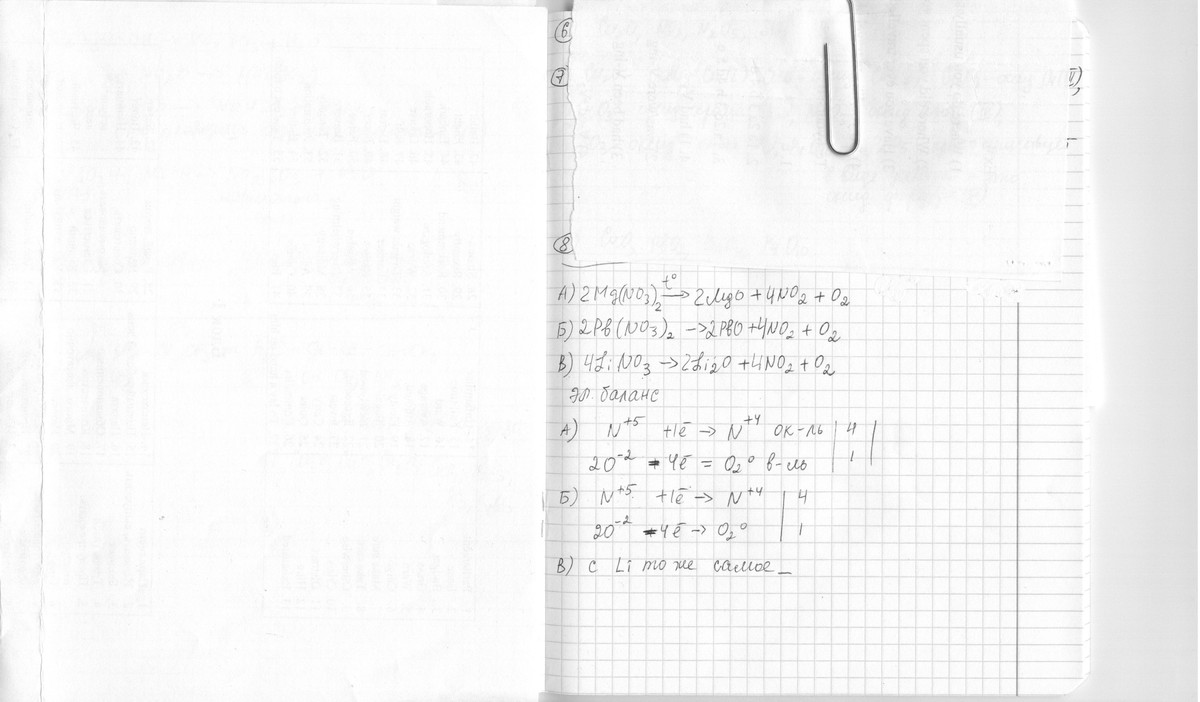 6
7
V),
8
А) 2Mg(NO3)2 t°→ 2MgO + 4NO2 + O2
Б) 2Pb(NO3)2 → 2PbO + 4NO2 + O2
В) 4LiNO3 → 2Li2O + 4NO2 + O2
эл. баланс
А) N+5 +1ē → N+4 ок-ль | 4 |
2O-2 -4ē = O2° в-ль | 1 |
Б) N+5 +1ē → N+4 | 4
2O-2 -4ē → O2° | 1
В) с Li то же самое _